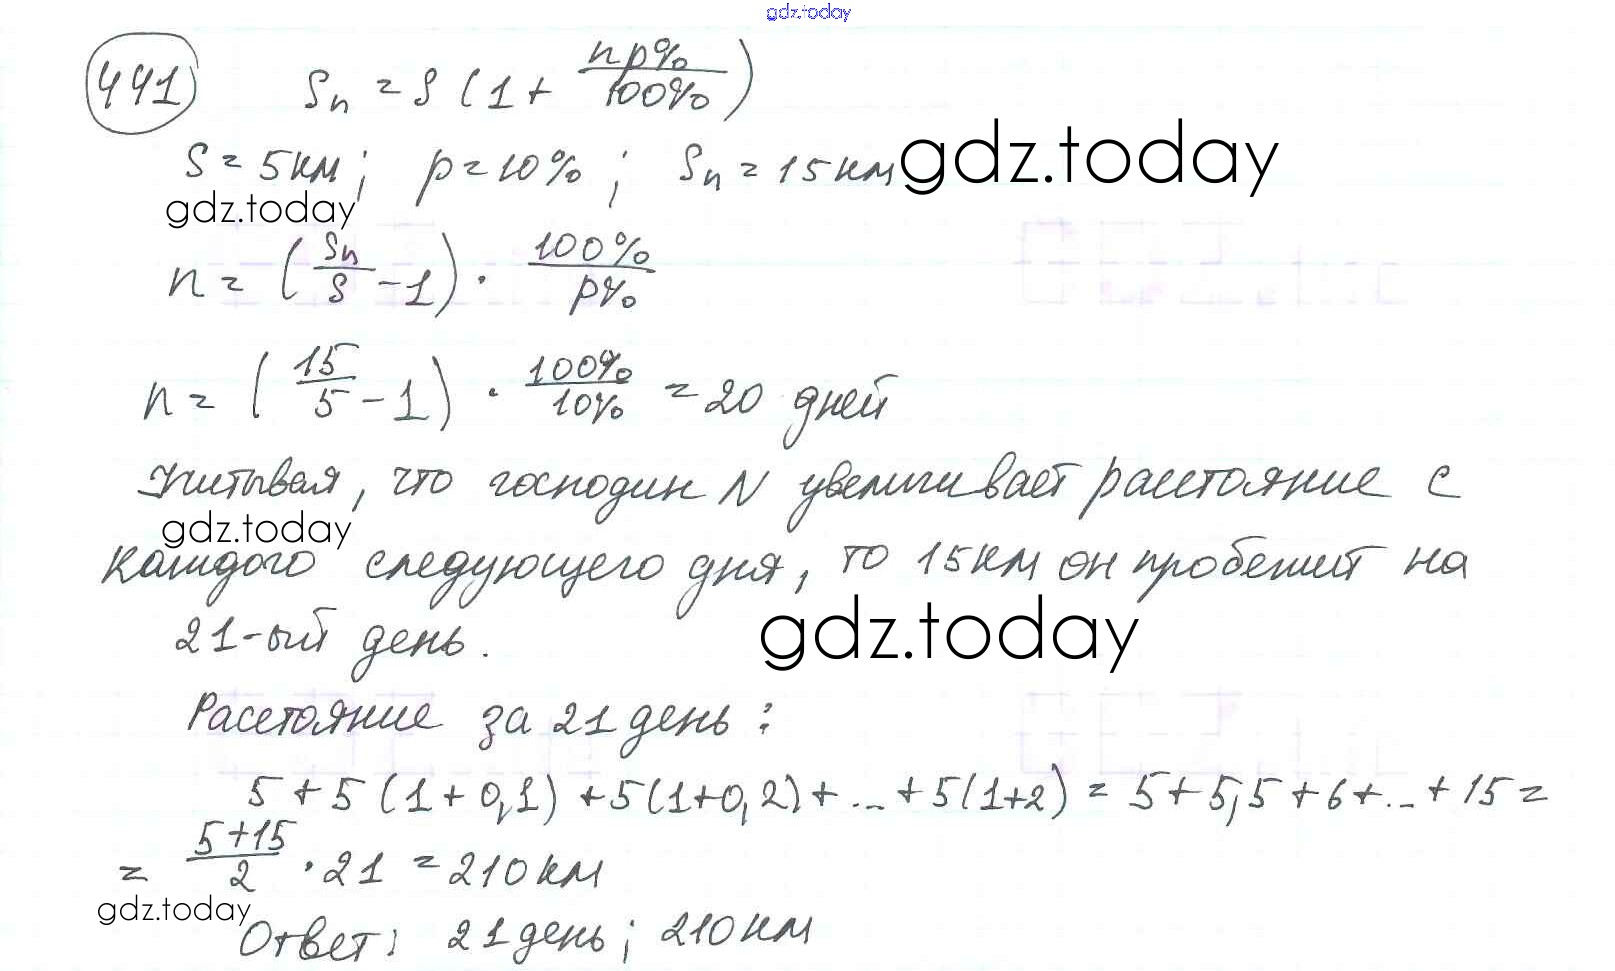 gdz.today
441 Sn = S (1 + np%/100%)
S = 5км; p = 10%; Sn = 15км gdz.today
gdz.today
n = (Sn/S - 1) · 100%/p%
n = (15/5 - 1) · 100%/10% = 20 дней
Учитывая, что господин N увеличивает расстояние с
gdz.today
каждого следующего дня, то 15км он пробежит на
21-ый день.
gdz.today
Расстояние за 21 день:
5 + 5 (1 + 0,1) + 5(1+0,2)+ ... + 5(1+2) = 5+5,5+6+...+15 =
= 5+15/2 · 21 = 210км
gdz.today
Ответ: 21 день; 210км